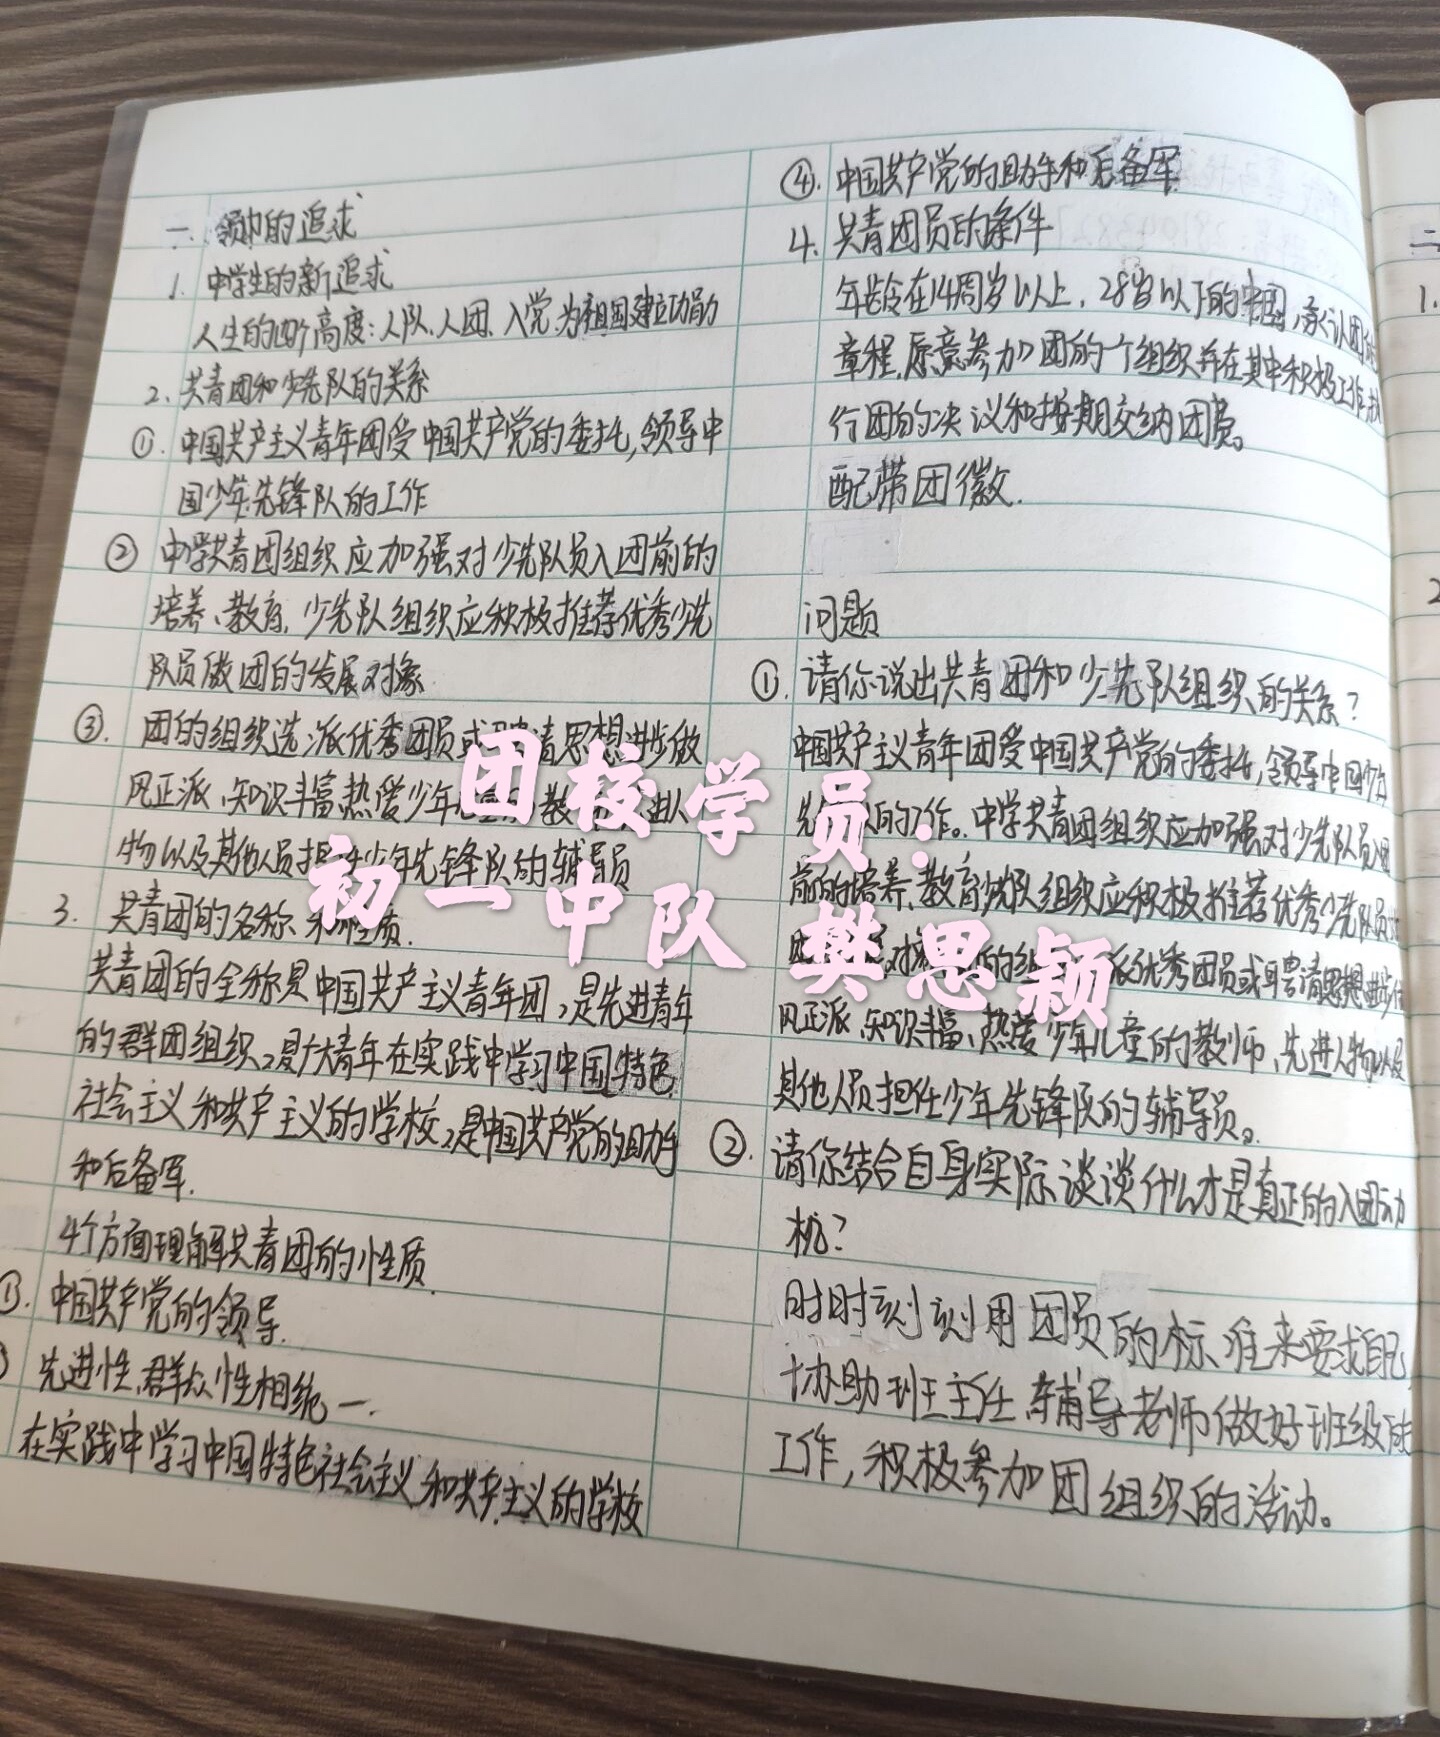 一、领巾的追求
1. 中学生的新追求
人生的四个高度：人队、人团、入党、为祖国建立功勋
2. 共青团和少先队的关系
①. 中国共产主义青年团受中国共产党的委托,领导中
国少年先锋队的工作
② 中学共青团组织应加强对少先队员入团前的
培养、教育，少先队组织应积极推荐优秀少先
队员做团的发展对象
③. 团的组织选派优秀团员或聘请思想进步做
风正派、知识丰富,热爱少年
物以及其他人员担任少年先锋队的辅导员
3. 共青团的名称和性质.
共青团的全称是中国共产主义青年团,是先进青年
的群团组织,是广大青年在实践中学习中国特色
社会主义和共产主义的学校,是中国共产党的助手
和后备军.
4个方面理解共青团的性质.
①. 中国共产党的领导.
先进性、群众性相统一.
在实践中学习中国特色社会主义和共产主义的学校
④. 中国共产党的助手和后备军
4. 共青团员的条件
年龄在14周岁以上,28岁以下的中国,承认团
章程,愿意参加团的一个组织并在其中积极工作、
行团的决议和按期交纳团费。
配带团徽.
问题
①. 请你说出共青团和少先队组织的关系?
中国共产主义青年团受中国共产党的委托,领导中国少年
先 队的工作。中学共青团组织应加强对少先队员入团
前的培养、教育少先队组织应积极推荐优秀少先队员
对 的组 派优秀团员或聘请思想进步作
风正派、知识丰富、热爱少年儿童的教师、先进人物以及
其他人员担任少年先锋队的辅导员。
②. 请你结合自身实际谈谈什么才是真正的入团动
机?
时时刻刻用团员的标准来要求自己
协助班主任、辅导老师做好班级的
工作,积极参加团组织的活动。
团校学员：
初一中队 樊思颖
二
1.
2